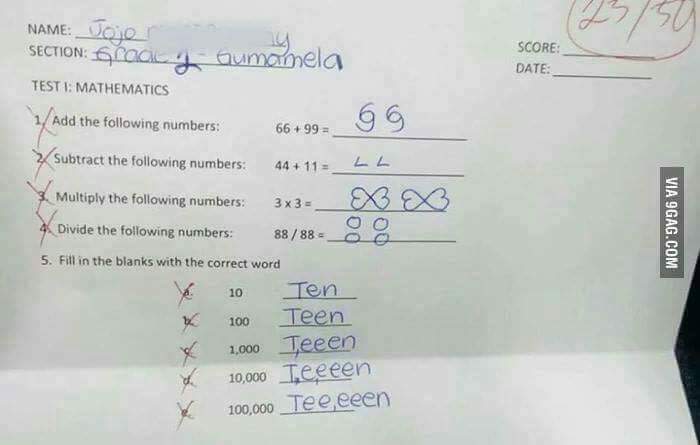 23/50
NAME: Jojo
SECTION: Grade 2 - Gumamela
SCORE:
DATE:
TEST I: MATHEMATICS
1. Add the following numbers: 66 + 99 =
2. Subtract the following numbers: 44 + 11 = L L
3. Multiply the following numbers: 3 x 3 =
4. Divide the following numbers: 88 / 88 =
5. Fill in the blanks with the correct word
a. 10 Ten
b. 100 Teen
c. 1,000 T,eeen
d. 10,000 T,e,eeen
e. 100,000 Tee,eeen
VIA 9GAG.COM